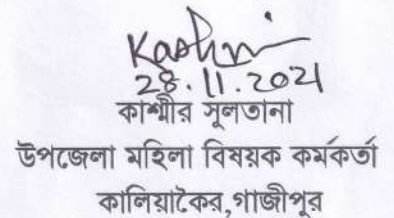 Kashmi
28.11.2021
কাশ্মীর সুলতানা
উপজেলা মহিলা বিষয়ক কর্মকর্তা
কালিয়াকৈর,গাজীপুর